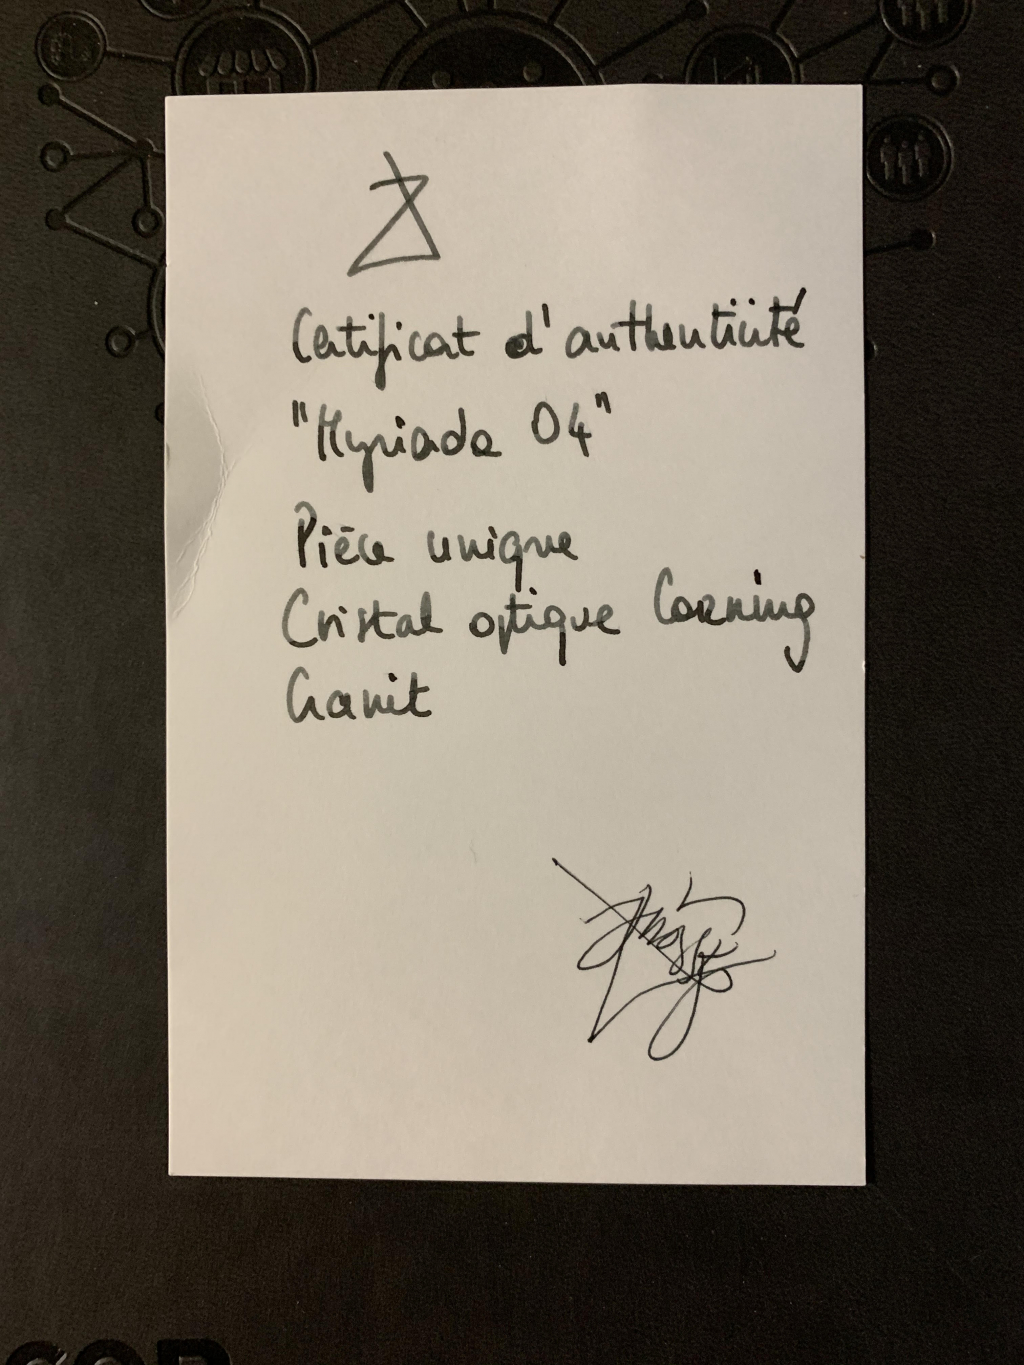 Certificat d'authenticité
"Myriade 04"
Pièce unique
Cristal optique Corning
Granit